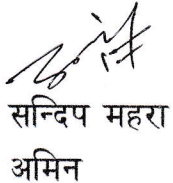 सन्दिप महरा
अमिन